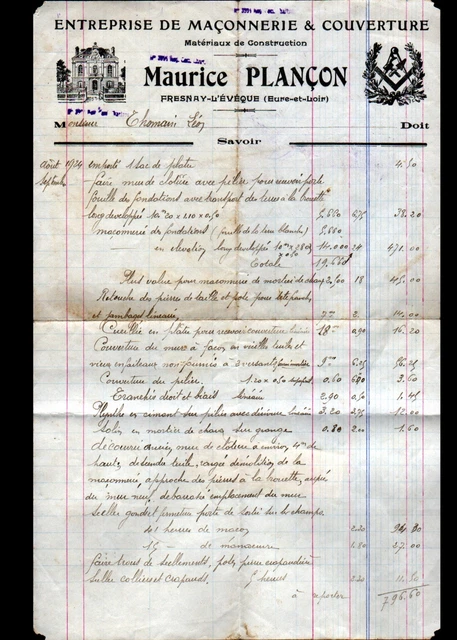 ENTREPRISE DE MAÇONNERIE & COUVERTURE
Matériaux de Construction
Maurice PLANÇON
FRESNAY-L'ÉVÊQUE (Eure-et-Loir)
Monsieur Thomain Léon Doit
Savoir
Août 1924 emporté 1 sac de platre 4.50
Septembre faire mur de clôture avec pilier pour recevoir porte
fouille des fondations avec transport des terres à la brouette
long developpée 10.20 x 1.10 x 0.50 5.610 6.75 38.20
maçonnerie des fondations (fouille de la terre blanche) 5.610
en elevation long developpée 14.000 24 471.00
Totale
Plus value pour maçonnerie de mortier de chaux 2.500 18 45.00
Retouche des pierres de taille et pose
et jambages linéaire, 7 2. 14.00
Cueillie en platre pour recevoir couverture 18 0.90 16.20
Couverture du mur à façon en vieille tuile et
vieux enfaiteaux non fournis à 2 versants 9 6.25 56.25
Couverture du pilier 1.20 x 0.50 0.60 6.00 3.60
Tranchis droit et biais linéaire 2.90 0.50 1.45
Plinthe en ciment sur pilier avec linéaire 3.20 3.75 12.00
Solin en mortier de chaux sur grange 0.80 2.00 1.60
découvrir ancien mur de clôture à environ 4m de
haut, descendre tuile, rangée démolition de la
maçonnerie, approche des pierres à la brouette, auprès
du mur neuf, debarrassé emplacement du mur
Scelle gonds et fermeture porte de sortie sur les champs
41 heures de maçon 2.30 94.30
15 de manoeuvre 1.80 27.00
faire trous de scellements, poser pierre crapaudière
Sceller colliers et crapauds, 5 heures 2.30 11.50
à reporter 796.60